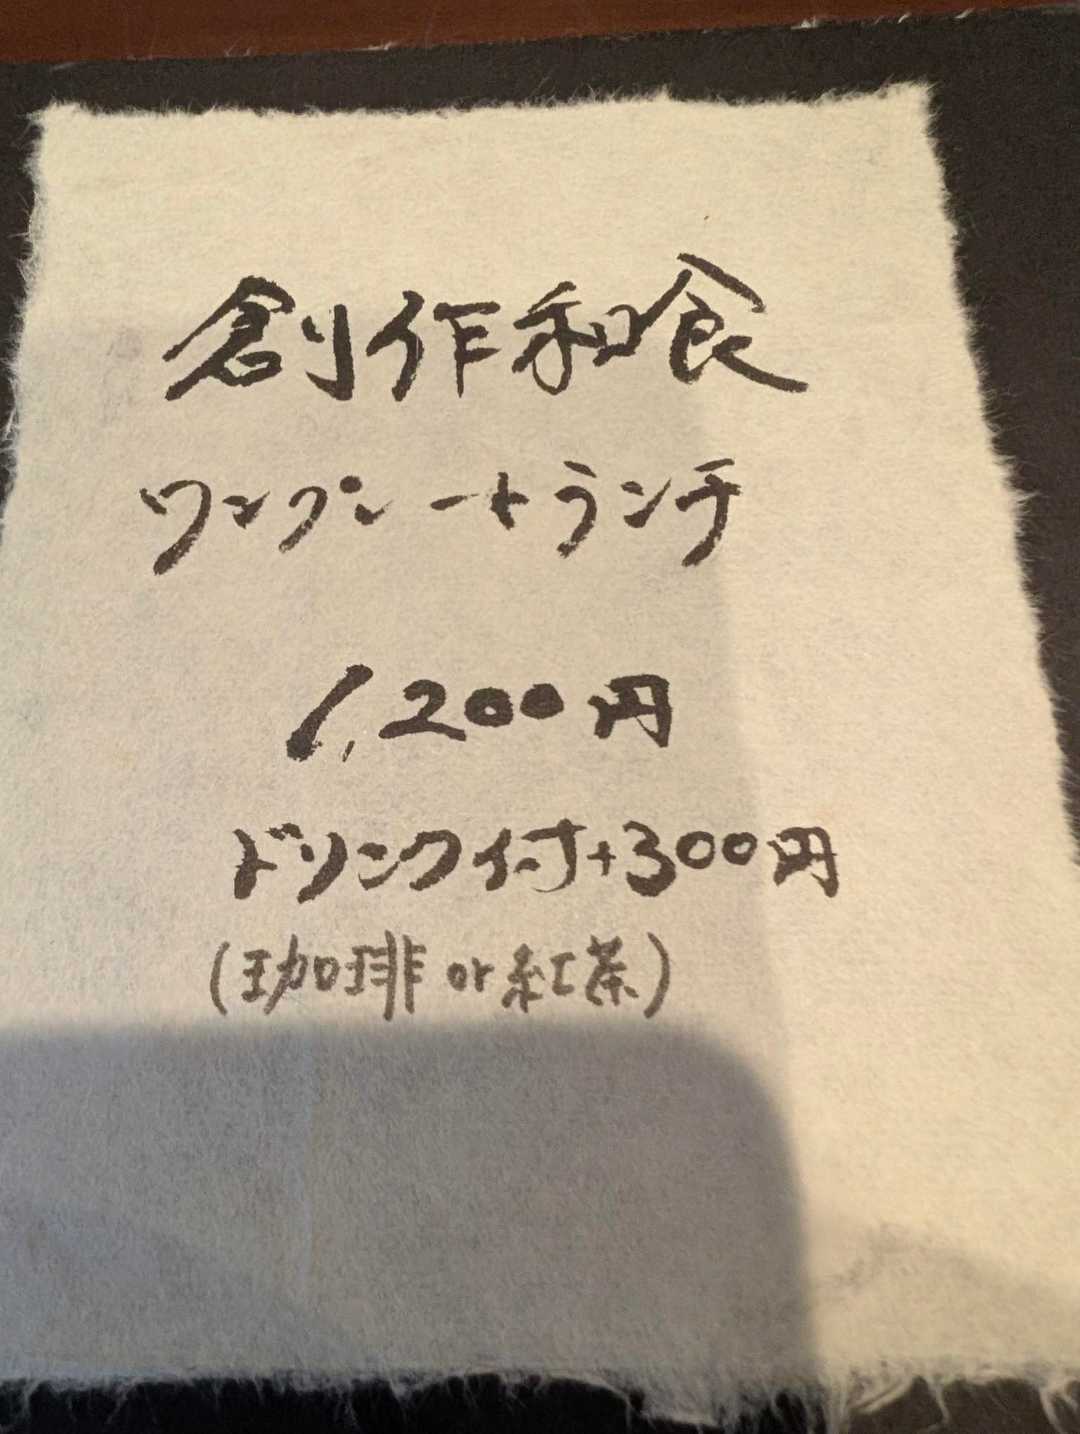 創作和食
ワンプレートランチ
1,200円
ドリンク付+300円
(珈琲 or 紅茶)